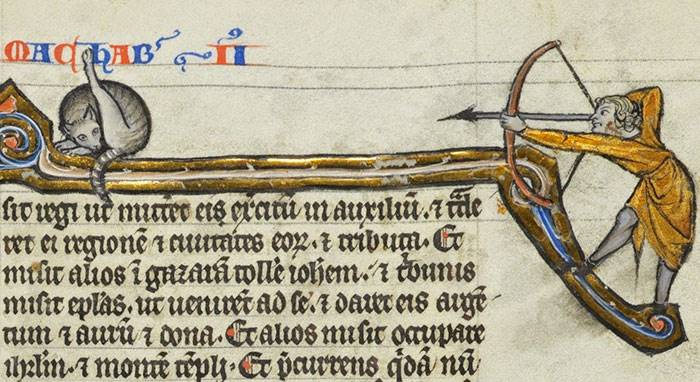 MACHAB' II
sit regi ut mitt͛et eis ex̾citū in auxiliū. ⁊ t̃de
ret ei regionē ⁊ ciuitates eoꝝ. ⁊ tributa. Et
misit alios ī gazarā toll͛e ioh̄em. ⁊ t̾bunis
misit ep̄las. ut uenirēt ad se. ⁊ daret eis argē-
tum ⁊ aurū ⁊ dona. Et alios misit occupare
ihrl̄m. ⁊ montē tēpli. Et p̾currens q̾dā nū